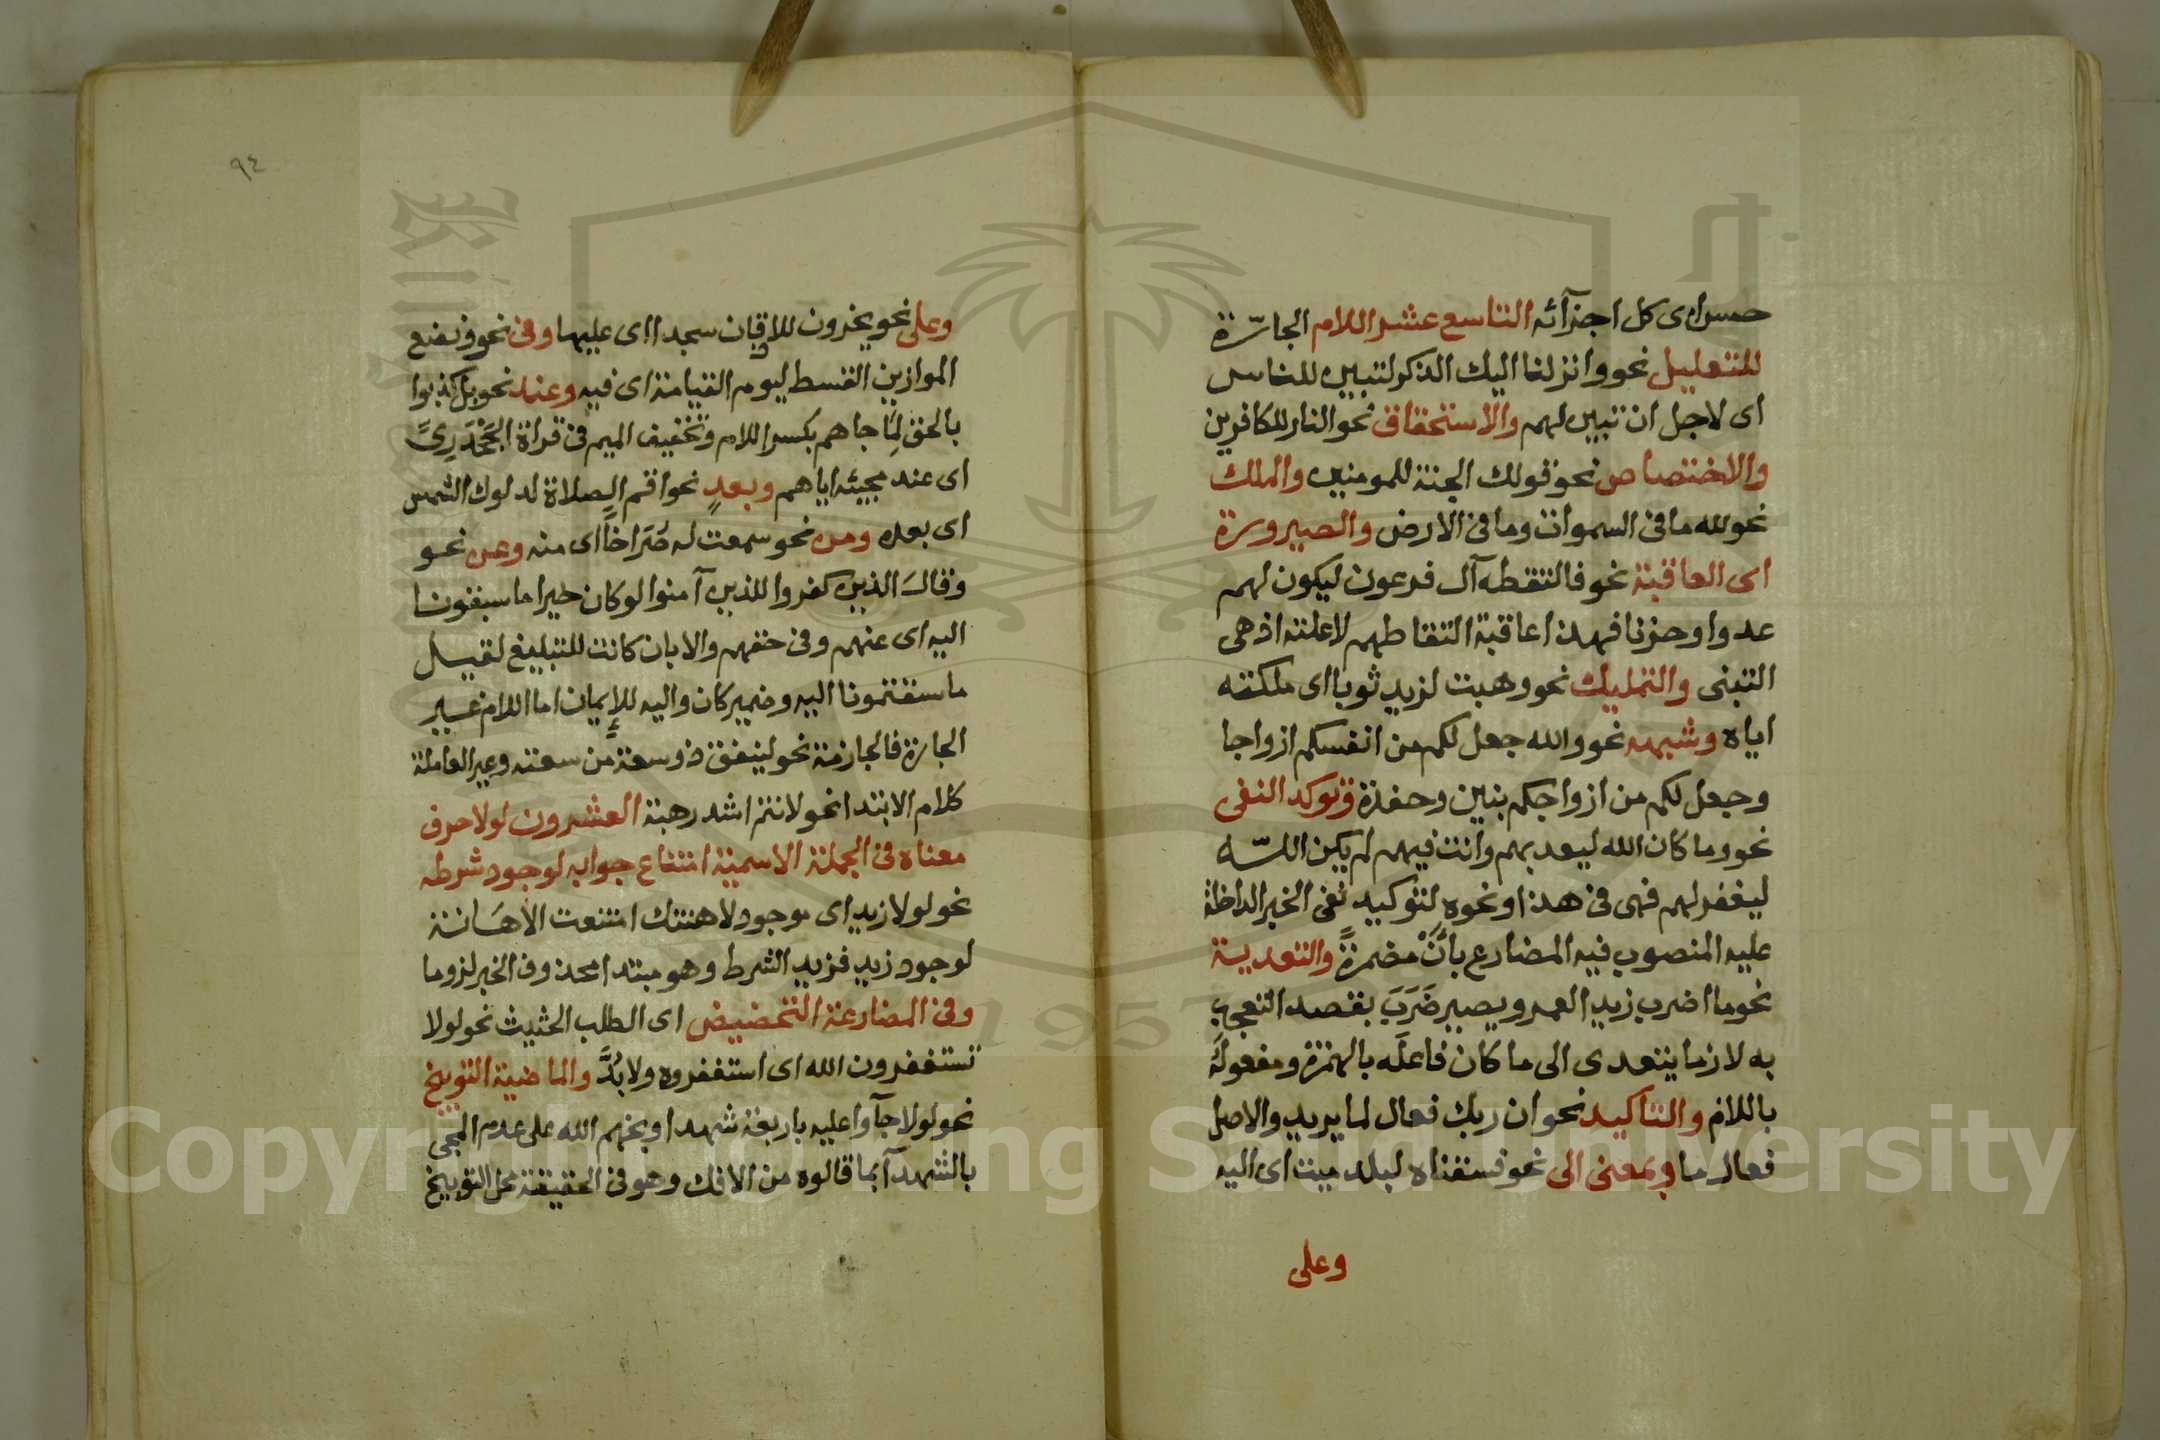 حسن اى كل اجزآئه التاسع عشر اللام الجارّة
للتعليل نحو وانزلنا اليك الذكر لتبين للناس
اى لاجل ان تبين لهم والاستحقاق نحو النار للكافرين
والاختصاص نحو قولك الجنة للمومنين والملك
نحو لله ما فى السموات وما فى الارض والصيرورة
اى العاقبة نحو فالتقطه آل فرعون ليكون لهم
عدوا وحزنا فهذا عاقبة التقاطهم لا علته اذ هى
التبنى والتمليك نحو وهبت لزيد ثوبا اى ملكته
اياه وشبهه نحو والله جعل لكم من انفسكم ازواجا
وجعل لكم من ازواجكم بنين وحفدة وتوكد النفى
نحو وما كان الله ليعذبهم وانت فيهم لم يكن اللّه
ليغفر لهم فهى فى هذا ونحوه لتوكيد نفى الخبر الداخلة
عليه المنصوب فيه المضارع بانْ مضمرةً والتعدية
نحو ما اضرب زيد العمرو يصير ضَرَبَ بقصد التعجب
به لازما يتعدى الى ما كان فاعلَه بالهمزة ومفعولَه
باللام والتاكيد نحو ان ربك فعال لما يريد والاصل
فعال ما وبمعنى الى نحو فسقناه لبلد ميت اى اليه
وعلى
٩٤
وعلى نحو يخرون للاذقان سجدا اى عليها وفى نحو ونضع
الموازين القسط ليوم القيامة اى فيه وعند نحو بل كذبوا
بالحق لِمَا جاهم بكسر اللام وتخفيف الميم فى قراة الجَحْدَرِىِّ
اى عند مجيئه اياهم وبعد نحو اقم الصلاة لدلوك الشمس
اى بعده ومن نحو سمعت له صُرَاخًا اى منه وعن نحو
وقالَ الذين كفروا للذين آمنوا لو كان خيرا ما سبقونا
اليه اى عنهم وفى حقهم والا بان كانت للتبليغ لقيل
ما سبقتمونا اليه وضمير كان واليه للإيمان اما اللام غير
الجارة فالجازمة نحو لينفق ذو سعة من سعته وغير العاملة
كلام الابتدا نحو لانتم اشد رهبة العشرون لولا حرف
معناه فى الجملة الاسمية امتناع جوابه لوجود شرطه
نحو لولا زيد اى موجود لاهنتك امتنعت الاهَانة
لوجود زيد فزيد الشرط وهو مبتدا محذوف الخبر لزوما
وفى المضارعة التحضيض اى الطلب الحثيث نحو لولا
تستغفرون الله اى استغفروه ولا بُدَّ والماضية التوبيخ
نحو لولا جآوا عليه باربعة شهدا وبخهم الله على عدم المجى
بالشهدآ بما قالوه من الافك وهو فى الحقيقة محل التوبيخ
Copyright © King Saud University
1957